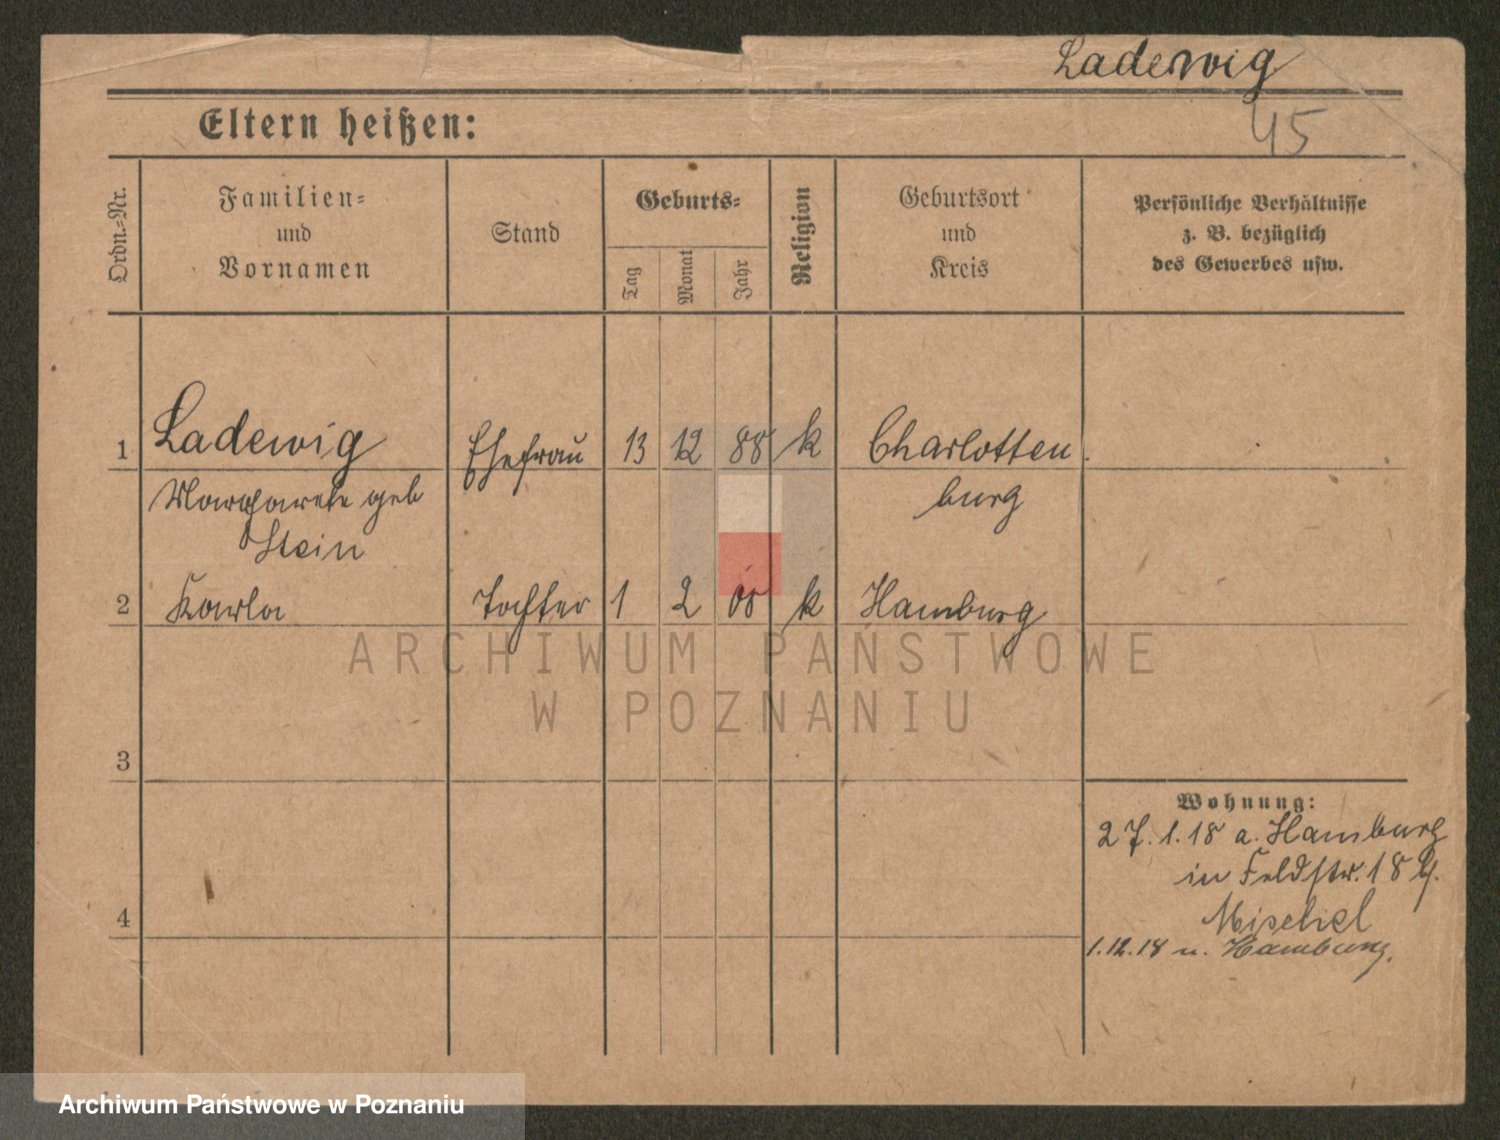 Ladewig
Eltern heißen:
45
Ordn.-Nr.
Familien-
und
Vornamen
Stand
Geburts-
Tag
Monat
Jahr
Religion
Geburtsort
und
Kreis
Persönliche Verhältnisse
z. B. bezüglich
des Gewerbes usw.
1 Ladewig Ehefrau 13 12 88 k Charlotten
Margarete geb burg
Stein
2 Karla Tochter 1 2 08 k Hamburg
ARCHIWUM PAŃSTWOWE
W POZNANIU
3
Wohnung:
27.1.18 a. Hamburg
in Feldstr. 18 b.
Mischel
4
1.12.18 n. Hamburg.
Archiwum Państwowe w Poznaniu